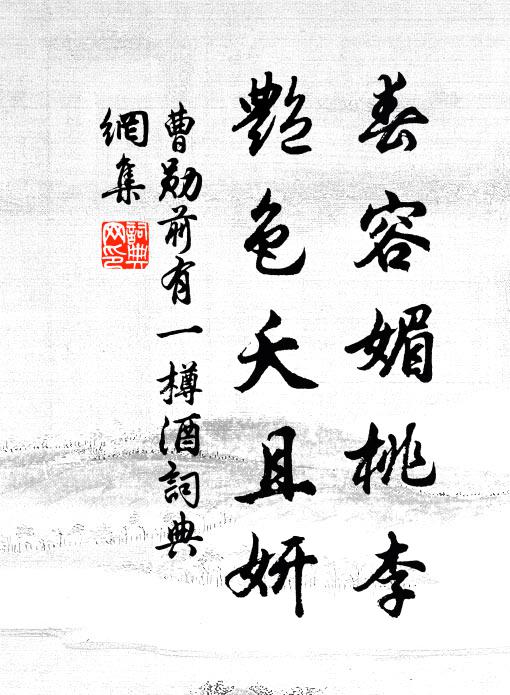 春容媚桃李
艷色夭且妍
曹勛前有一樽酒詞典
網集
詞典網印